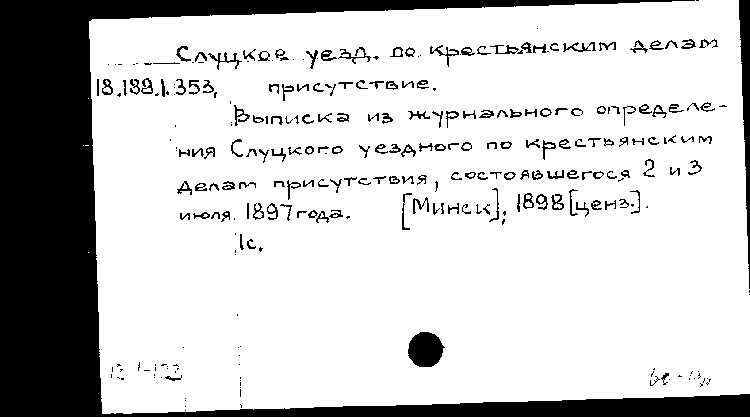 Слуцкое уезд. по крестьянским делам
18.199.1.353, присутствие.
Выписка из журнального определе-
ния Слуцкого уездного по крестьянским
делам присутствия, состоявшегося 2 и 3
июля 1897 года. [Минск], 1898 [ценз.].
1с.